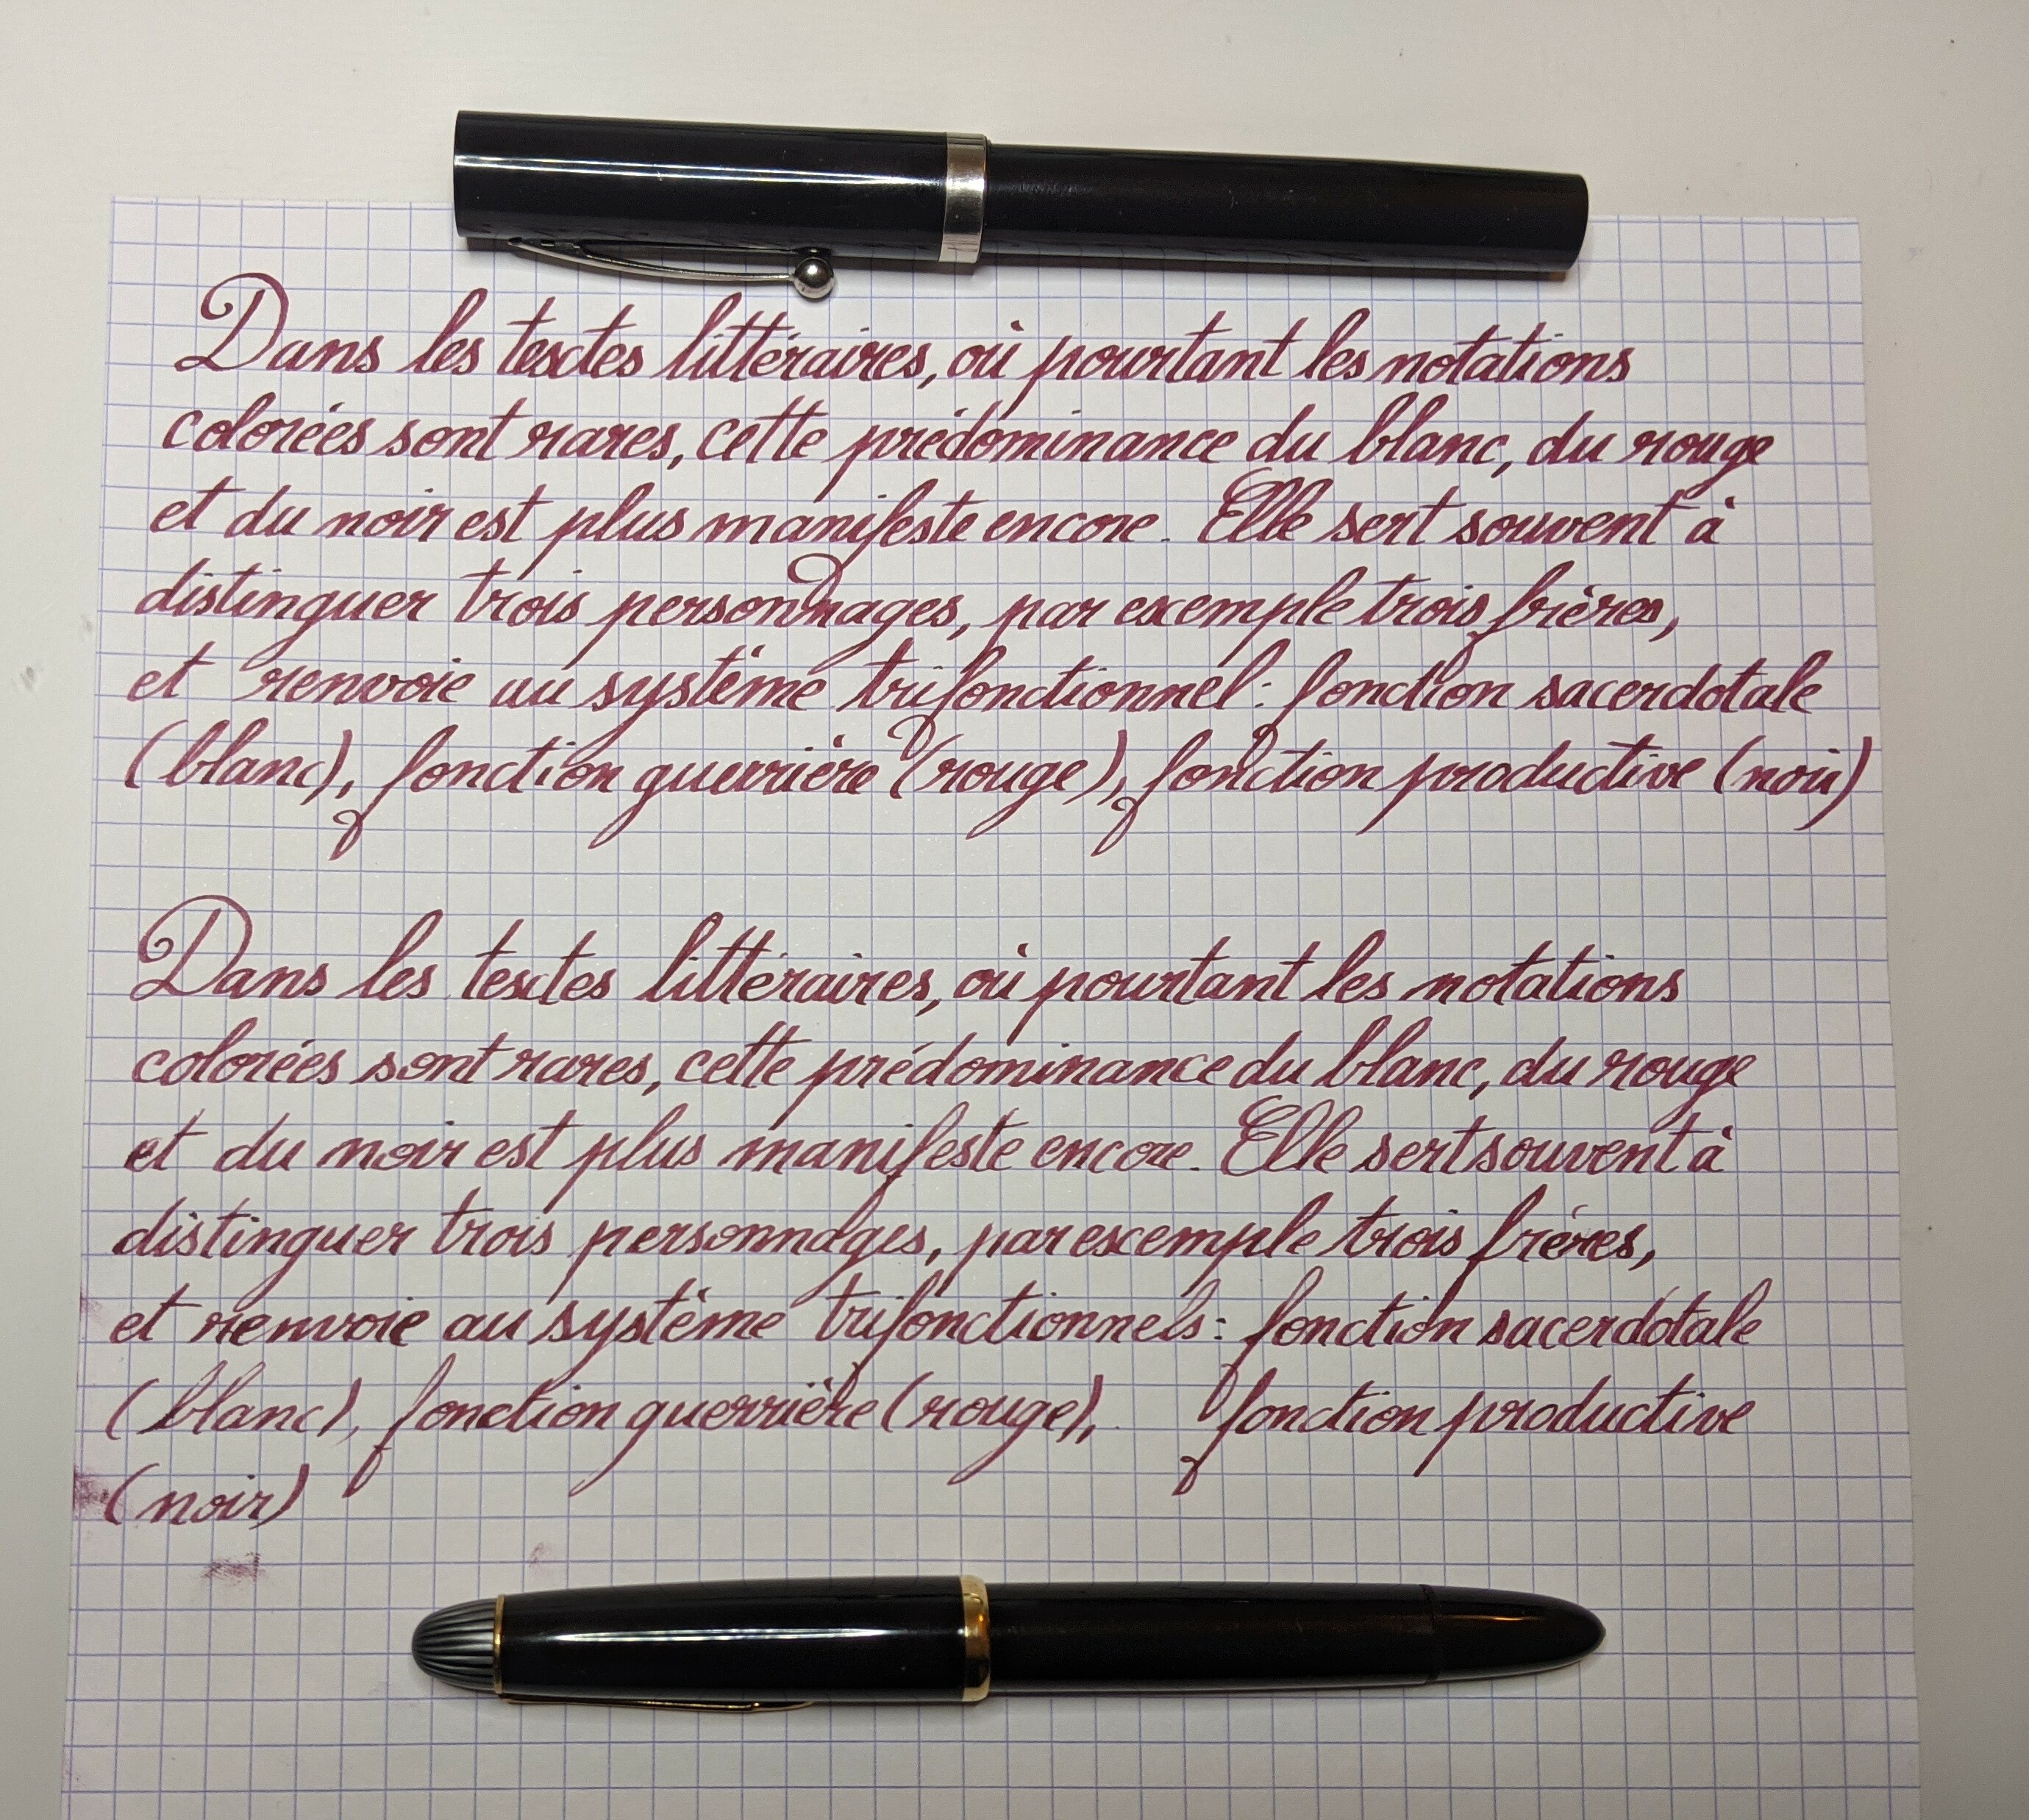 Dans les textes littéraires, où pourtant les notations
colorées sont rares, cette prédominance du blanc, du rouge
et du noir est plus manifeste encore. Elle sert souvent à
distinguer trois personnages, par exemple trois frères,
et renvoie au système trifonctionnel : fonction sacerdotale
(blanc), fonction guerrière (rouge), fonction productive (noir)
Dans les textes littéraires, où pourtant les notations
colorées sont rares, cette prédominance du blanc, du rouge
et du noir est plus manifeste encore. Elle sert souvent à
distinguer trois personnages, par exemple trois frères,
et renvoie au système trifonctionnels : fonction sacerdotale
(blanc), fonction guerrière (rouge), fonction productive
(noir)